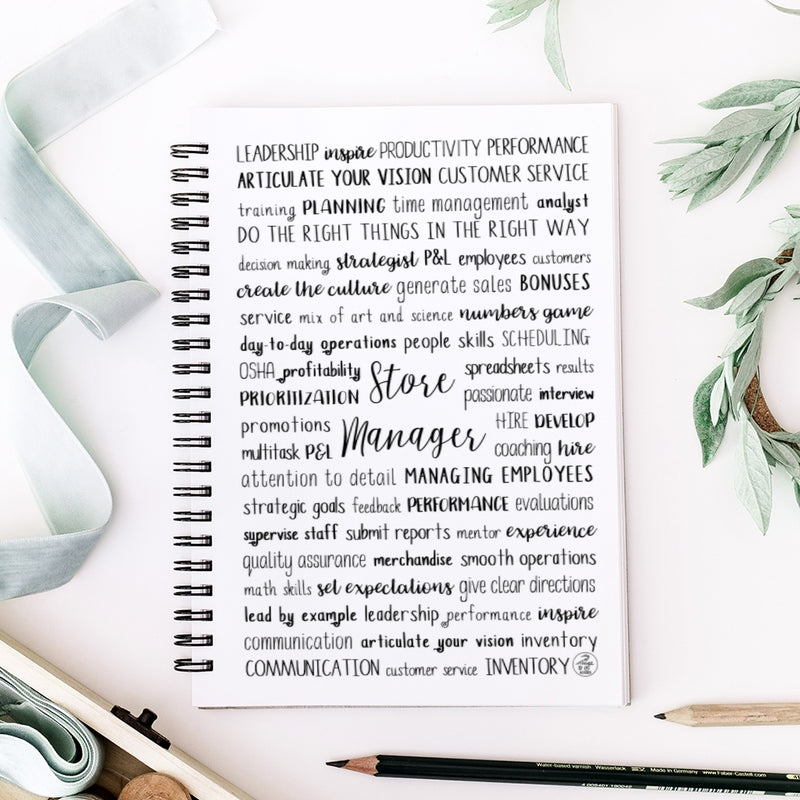 LEADERSHIP inspire PRODUCTIVITY PERFORMANCE
ARTICULATE YOUR VISION CUSTOMER SERVICE
training PLANNING time management analyst
DO THE RIGHT THINGS IN THE RIGHT WAY
decision making strategist P&L employees customers
create the culture generate sales BONUSES
service mix of art and science numbers game
day-to-day operations people skills SCHEDULING
OSHA profitability
PRIORITIZATION
Store
spreadsheets results
passionate interview
promotions
multitask P&L
Manager
HIRE DEVELOP
coaching hire
attention to detail MANAGING EMPLOYEES
strategic goals feedback PERFORMANCE evaluations
supervise staff submit reports mentor experience
quality assurance merchandise smooth operations
math skills set expectations give clear directions
lead by example leadership performance inspire
communication articulate your vision inventory
COMMUNICATION customer service INVENTORY
Water-based varnish Wasserlack Made in Germany www.Faber-Castell.com